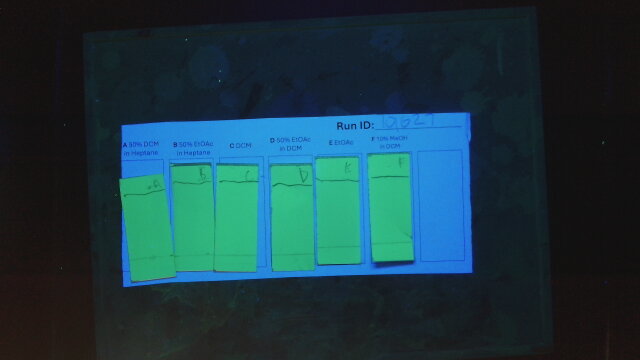 Run ID: 10,624
A 50% DCM
in Heptane
B 50% EtOAc
in Heptane
C DCM
D 50% EtOAc
in DCM
E EtOAc
F 10% MeOH
in DCM
A
B
C
D
E
F